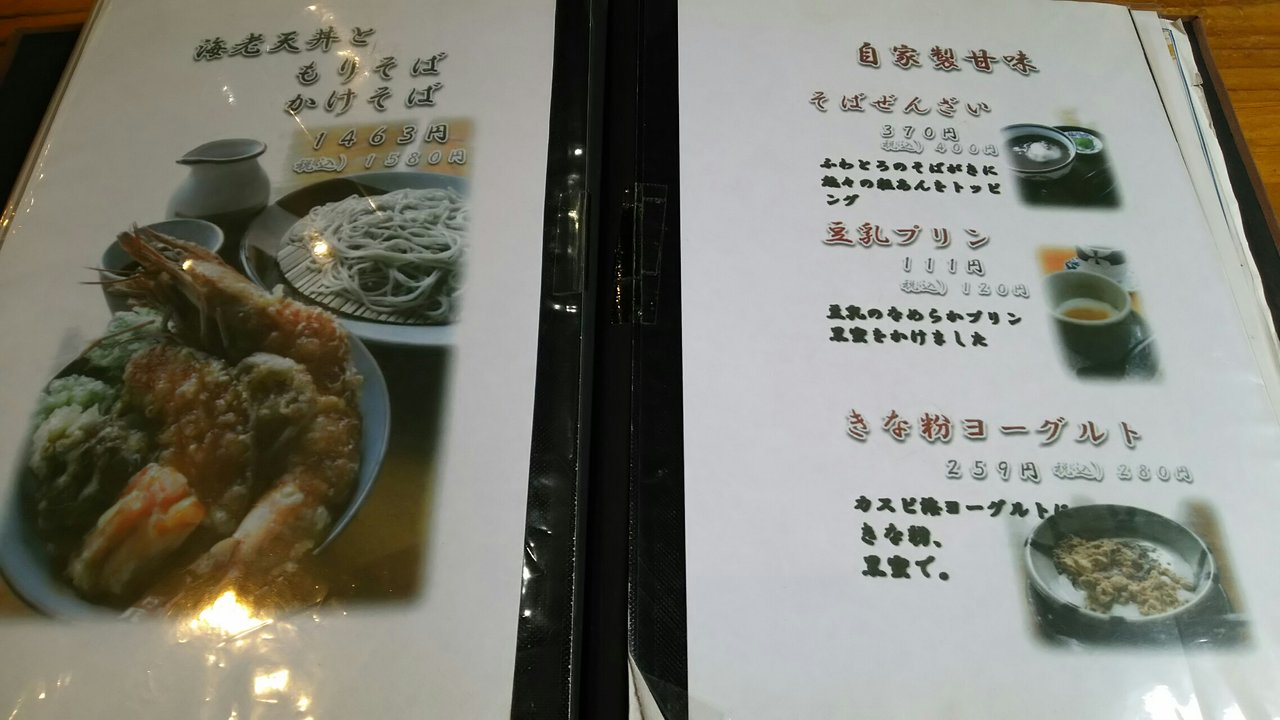 海老天丼と
もりそば
かけそば
1463円
税込)1580円
自家製甘味
そばぜんざい
370円
税込)400円
ふわとろのそばがきに
の粒あんをトッピ
ング
豆乳プリン
111円
税込)120円
豆乳のなめらかプリン
黒蜜をかけました
きな粉ヨーグルト
259円 税込)280円
カスピ海ヨーグルトに
きな粉、
黒蜜で。